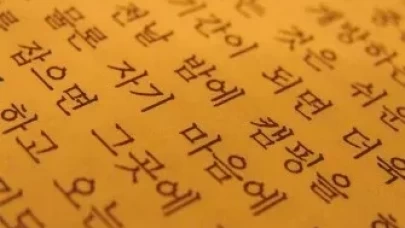 개방하
것은 쉬운
기간이 되면 더욱
전날 밤에 캠핑을
물론 자기 마음에
잡으면 그곳에
하고 오는